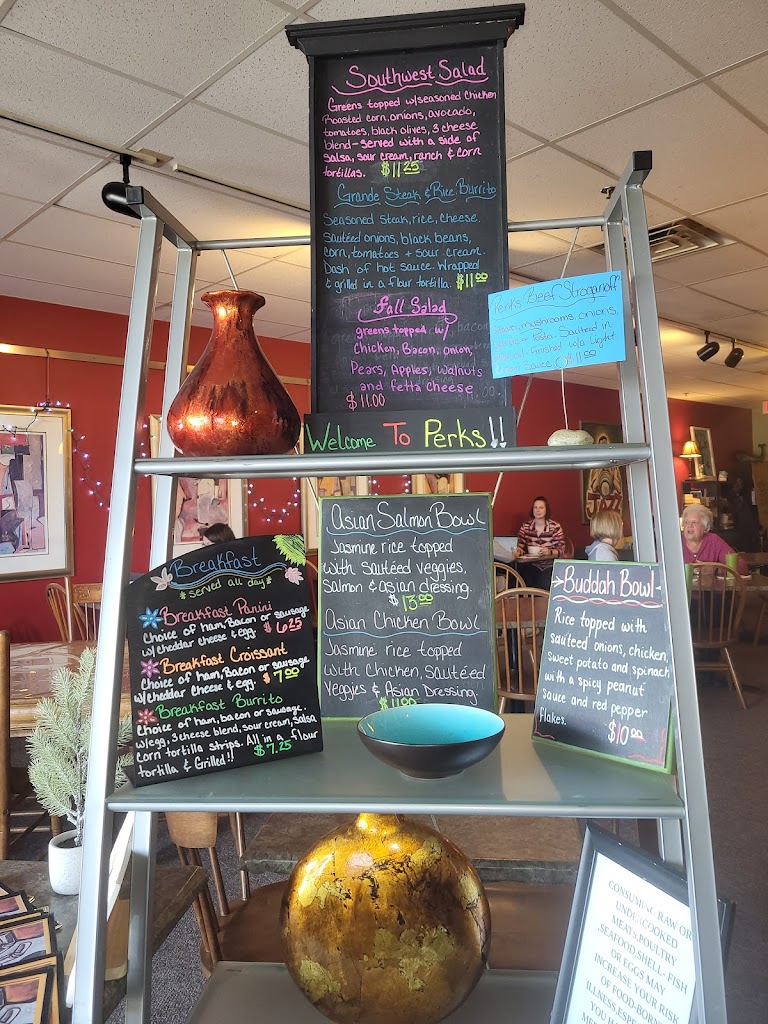 Southwest Salad
Greens topped w/seasoned chicken
Roasted corn, onions, avocado,
tomatoes, black olives, 3 cheese
blend - served with a side of
salsa, sour cream, ranch & corn
tortillas. $11.25
Grande Steak & Rice Burrito
Seasoned steak, rice, cheese.
Sautéed onions, black beans,
corn, tomatoes + sour cream.
Dash of hot sauce. Wrapped
& grilled in a flour tortilla. $11.00
Fall Salad
greens topped w/
Chicken, Bacon, onion,
Pears, Apples, Walnuts
and fetta cheese
$11.00
Perks Beef Stroganoff
mushrooms, onions,
Sautéed in
finished w/a light
sauce $11.00
Welcome To Perks!!
Breakfast
*served all day*
Breakfast Panini
Choice of ham, Bacon or sausage
w/cheddar cheese & egg. $6.25
Breakfast Croissant
Choice of ham, Bacon or sausage
w/cheddar cheese & egg. $7.00
Breakfast Burrito
Choice of ham, bacon or sausage.
w/egg, 3 cheese blend, sour cream, salsa
Corn tortilla strips. All in a flour
tortilla & Grilled!! $7.25
Asian Salmon Bowl
Jasmine rice topped
with sautéed veggies,
Salmon & asian dressing.
$13.00
Asian Chicken Bowl
Jasmine rice topped
with Chicken, Sautéed
Veggies & Asian Dressing.
$11.00
Buddah Bowl
Rice topped with
sautéed onions, chicken,
sweet potato and spinach
with a spicy peanut
sauce and red pepper
flakes. $10.00
JAZZ
CONSUMING RAW OR
UNDERCOOKED
MEATS, POULTRY
,SEAFOOD, SHELL- FISH
OR EGGS MAY
INCREASE YOUR RISK
OF FOOD-BORN
ILLNESS, ESPE
YOU H
ME